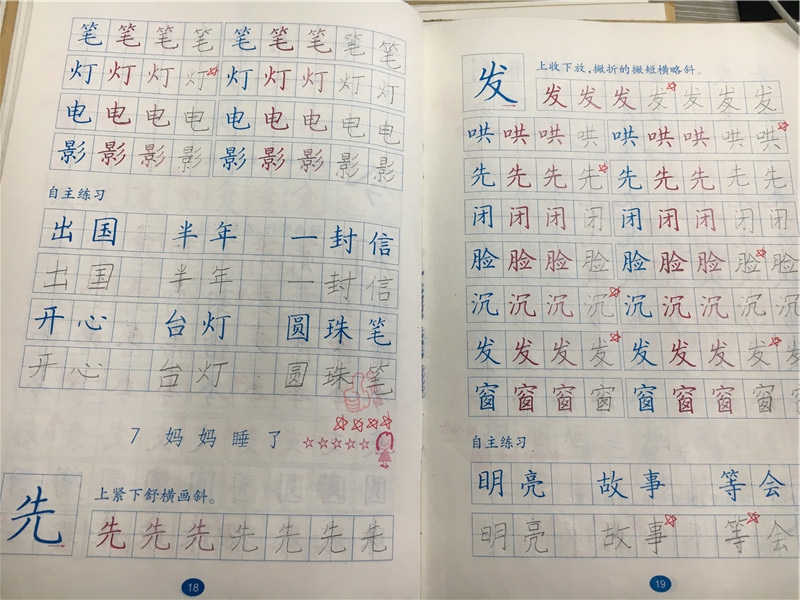 笔笔笔笔笔笔笔笔笔
灯灯灯灯灯灯灯灯灯
电电电电电电电电电
影影影影影影影影影
自主练习
出国 半年 一封信
出国 半年 一封信
开心 台灯 圆珠笔
开心 台灯 圆珠笔
7 妈妈睡了 ☆☆☆☆☆
先 上紧下舒横画斜。
先先先先先先先先
18
发 上收下放,撇折的撇短横略斜。
发发发发发发发
哄哄哄哄哄哄哄哄哄
先先先先先先先先先
闭闭闭闭闭闭闭闭闭
脸脸脸脸脸脸脸脸脸
沉沉沉沉沉沉沉沉沉
发发发发发发发发发
窗窗窗窗窗窗窗窗窗
自主练习
明亮 故事 等会
明亮 故事 等会
19